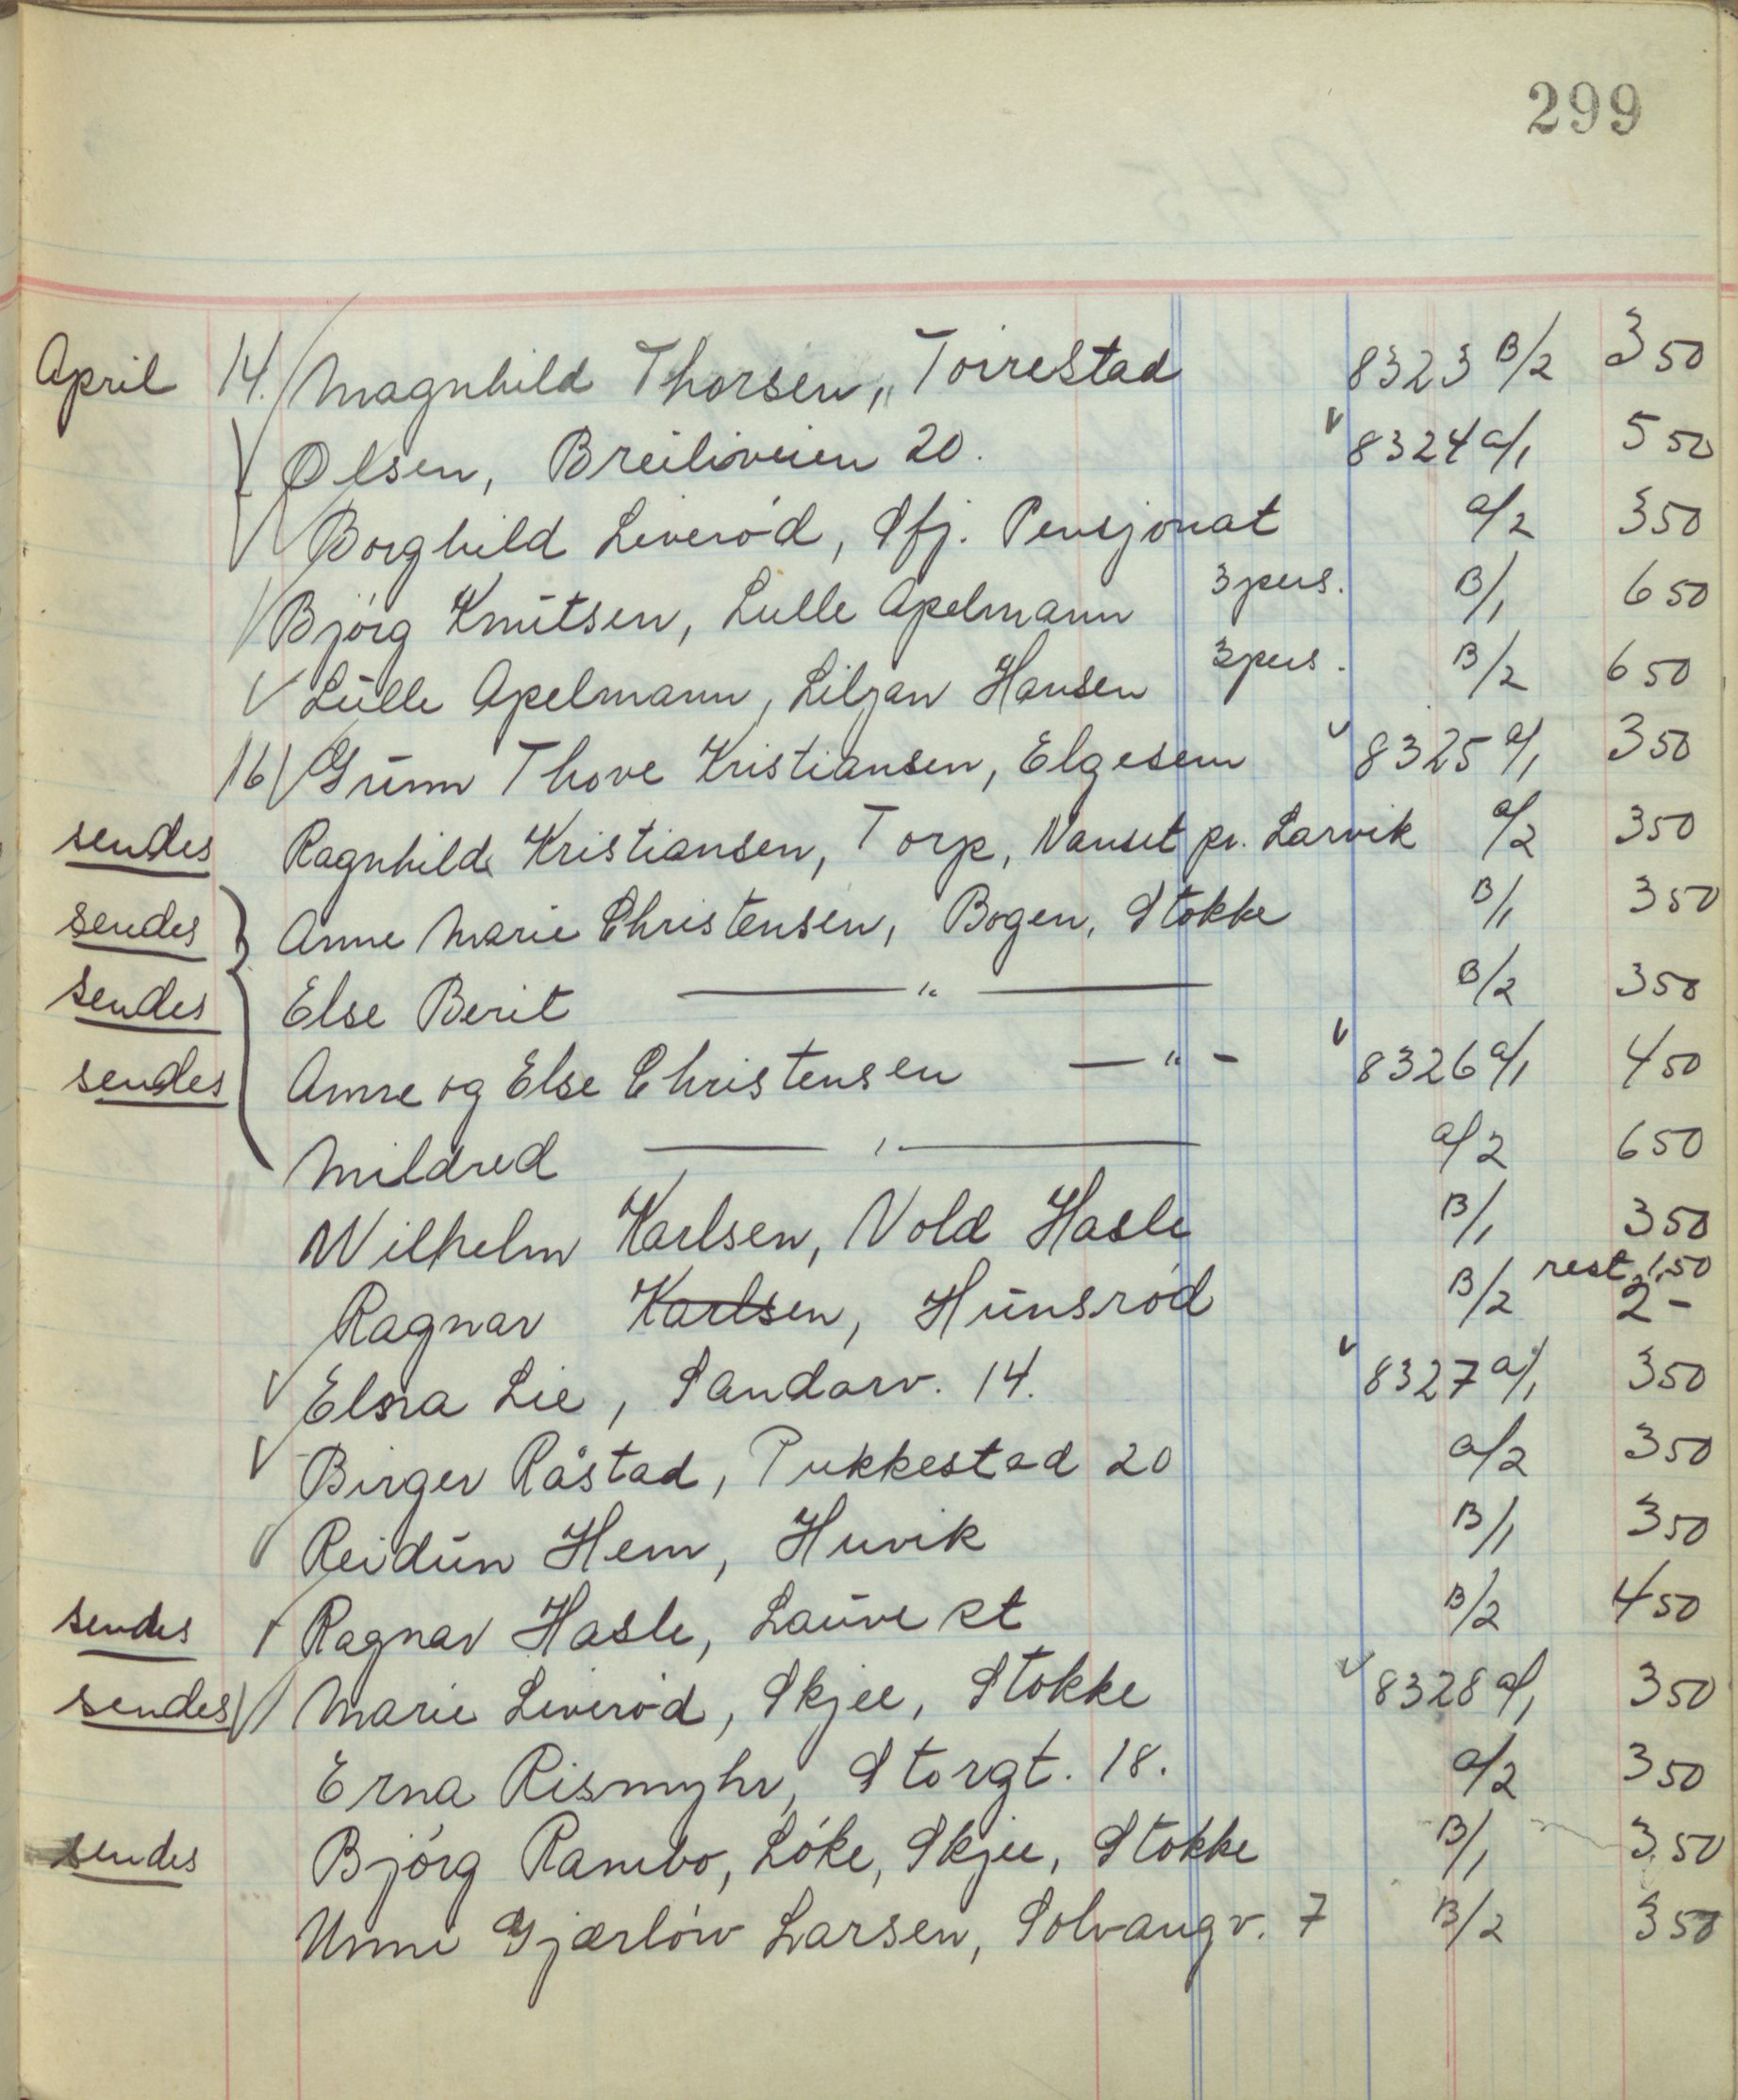 299
April 14. Magnhild Thorsen, „Toirestad 8323 B/2 3 50
Olsen, Breiliveien 20. 8324 a/1 5 50
Borghild Liverød, Sfj. Pensjonat a/2 3 50
Bjørg Knutsen, Lulle Apelmann 3 pers. B/1 6 50
Lulle Apelmann, Liljan Hansen 3 pers. B/2 6 50
16 Gunn Thove Kristiansen, Elgesem 8325 a/1 3 50
sendes Ragnhild Kristiansen, Torp, Nanset pr. Larvik a/2 3 50
sendes Anne Marie Christensen, Bogen, Stokke B/1 3 50
sendes Else Berit — " — B/2 3 50
sendes Anne og Else Christensen — " — 8326 a/1 4 50
Mildred — " — a/2 6 50
Wilhelm Karlsen, Vold Hasle B/1 3 50
rest 1,50
Ragnar Karlsen, Hunsrød B/2 2 -
Elna Lie, Sandarv. 14. 8327 a/1 3 50
Birger Råstad, Pukkestad 20 a/2 3 50
Reidun Hem, Huvik B/1 3 50
sendes Ragnar Hasle, Lauve st B/2 4 50
sendes Marie Liverød, Skjee, Stokke 8328 a/1 3 50
Erna Rismyhr, Storgt. 18. a/2 3 50
sendes Bjørg Rambo, Løke, Skjee, Stokke B/1 3 50
Unni Gjærløw Larsen, Solvangv. 7 B/2 3 50